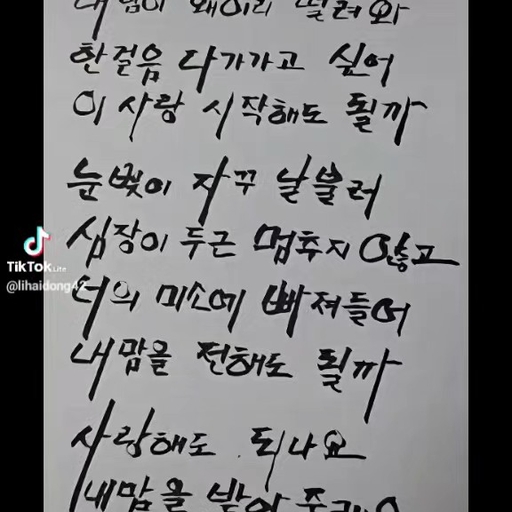 내 맘이 왜이리 떨려와
한걸음 다가가고 싶어
이 사랑 시작해도 될까
눈빛이 자꾸 날불러
심장이 두근 멈추지 않고
너의 미소에 빠져들어
내맘을 전해도 될까
사랑해도 되나요
내맘을 받아
TikTok Lite
@lihaidong42